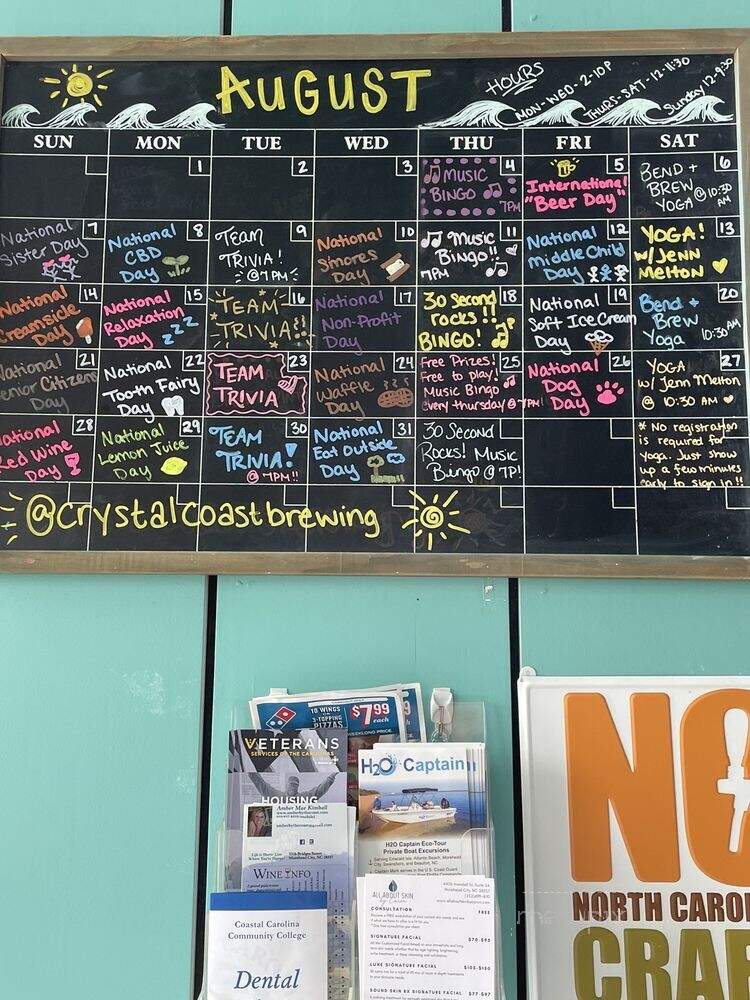 AUGUST
HOURS
MON-WED-2-10P
THURS-SAT-12-11:30
Sunday 12-9:30
SUN MON TUE WED THU FRI SAT
1
2
3
4
MUSIC
BINGO
7PM
5
International
"Beer Day"
6
BEND +
BREW
YOGA @ 10:30
AM
7
National
Sister Day
8
National
CBD
Day
9
TEAM
TRIVIA!
@ 7PM
10
National
S'mores
Day
11
Music
Bingo!!
7PM
12
National
Middle Child
Day
13
YOGA!
w/ JENN
MELTON
14
National
Creamsicle
Day
15
National
Relaxation
Day zzz
16
TEAM
TRIVIA!
17
National
Non-Profit
Day
18
30 Second
rocks!!
BINGO!
19
National
Soft Ice Cream
Day
20
Bend +
Brew
Yoga 10:30AM
21
National
Senior Citizens
Day
22
National
Tooth Fairy
Day
23
TEAM
TRIVIA
24
National
Waffle
Day
25
Free Prizes!
Free to play!
Music Bingo
every thursday @ 7PM!
26
National
Dog
Day
27
YOGA
w/ Jenn Melton
@ 10:30 AM
28
National
Red Wine
Day
29
National
Lemon Juice
Day
30
TEAM
TRIVIA!
@ 7PM!!
31
National
Eat Outside
Day
30 Second
Rocks! Music
Bingo @ 7P!
* No registration
is required for
Yoga. Just show
up a few minutes
early to sign in!!
@crystalcoastbrewing
10 WINGS
3-TOPPING
PIZZAS
$7.99
each
VETERANS
SERVICES OF THE CAROLINAS
HOUSING
Amber Mae Kimball
Morehead City, NC 28557
WINE INFO
Coastal Carolina
Community College
Dental
H2O Captain
H2O Captain Eco-Tour
Private Boat Excursions
Serving Emerald Isle, Atlantic Beach, Morehead
City, Swansboro, and Beaufort, NC
ALL ABOUT SKIN
Morehead City, NC 28557
CONSULTATION FREE
SIGNATURE FACIAL $70-$95
LUXE SIGNATURE FACIAL
SOUND SKIN RX SIGNATURE FACIAL $77-$97
NC
NORTH CARO
CRAF